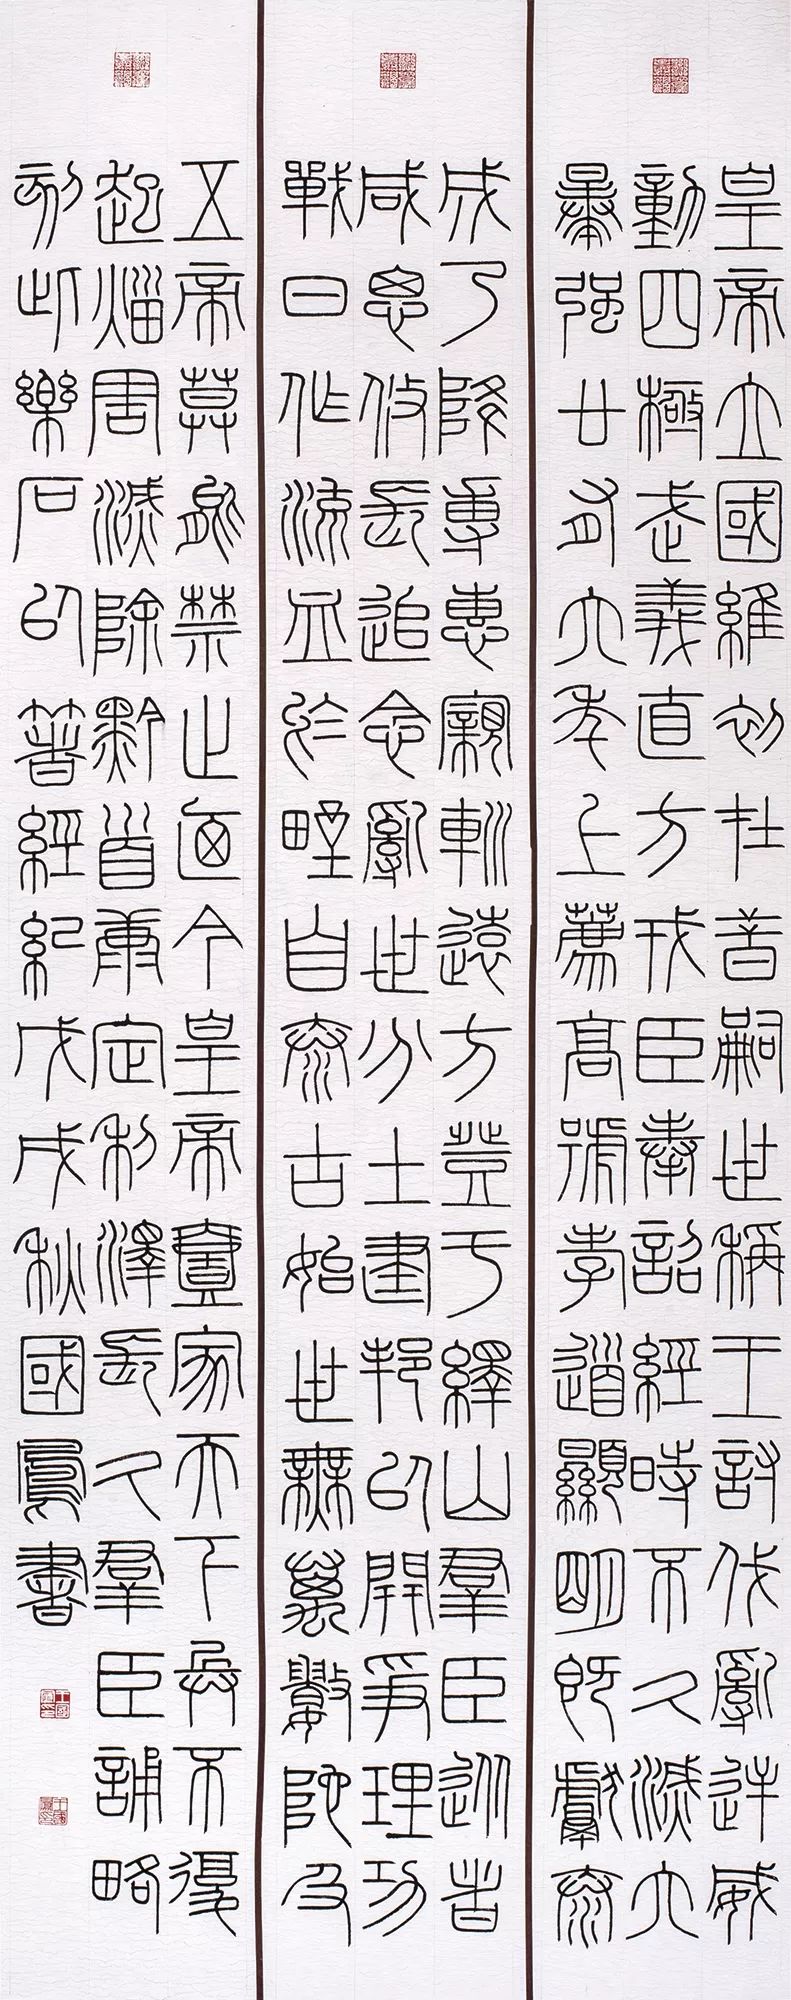 皇帝立國維初在昔嗣世稱王討伐亂逆威
動四極武義直方戎臣奉詔經時不久滅六
暴强廿有六年上薦高號孝道顯明既獻泰
成乃降尃惠親𨊠遠方登于繹山羣臣從者
咸思攸長追念亂世分土建邦以開爭理功
戰日作流血於野自泰古始世無萬數陀及
五帝莫能禁止迺今皇帝壹家天下兵不復
起災害滅除黔首康定利澤長久羣臣誦略
刻此樂石以著經紀戊戌秋國書